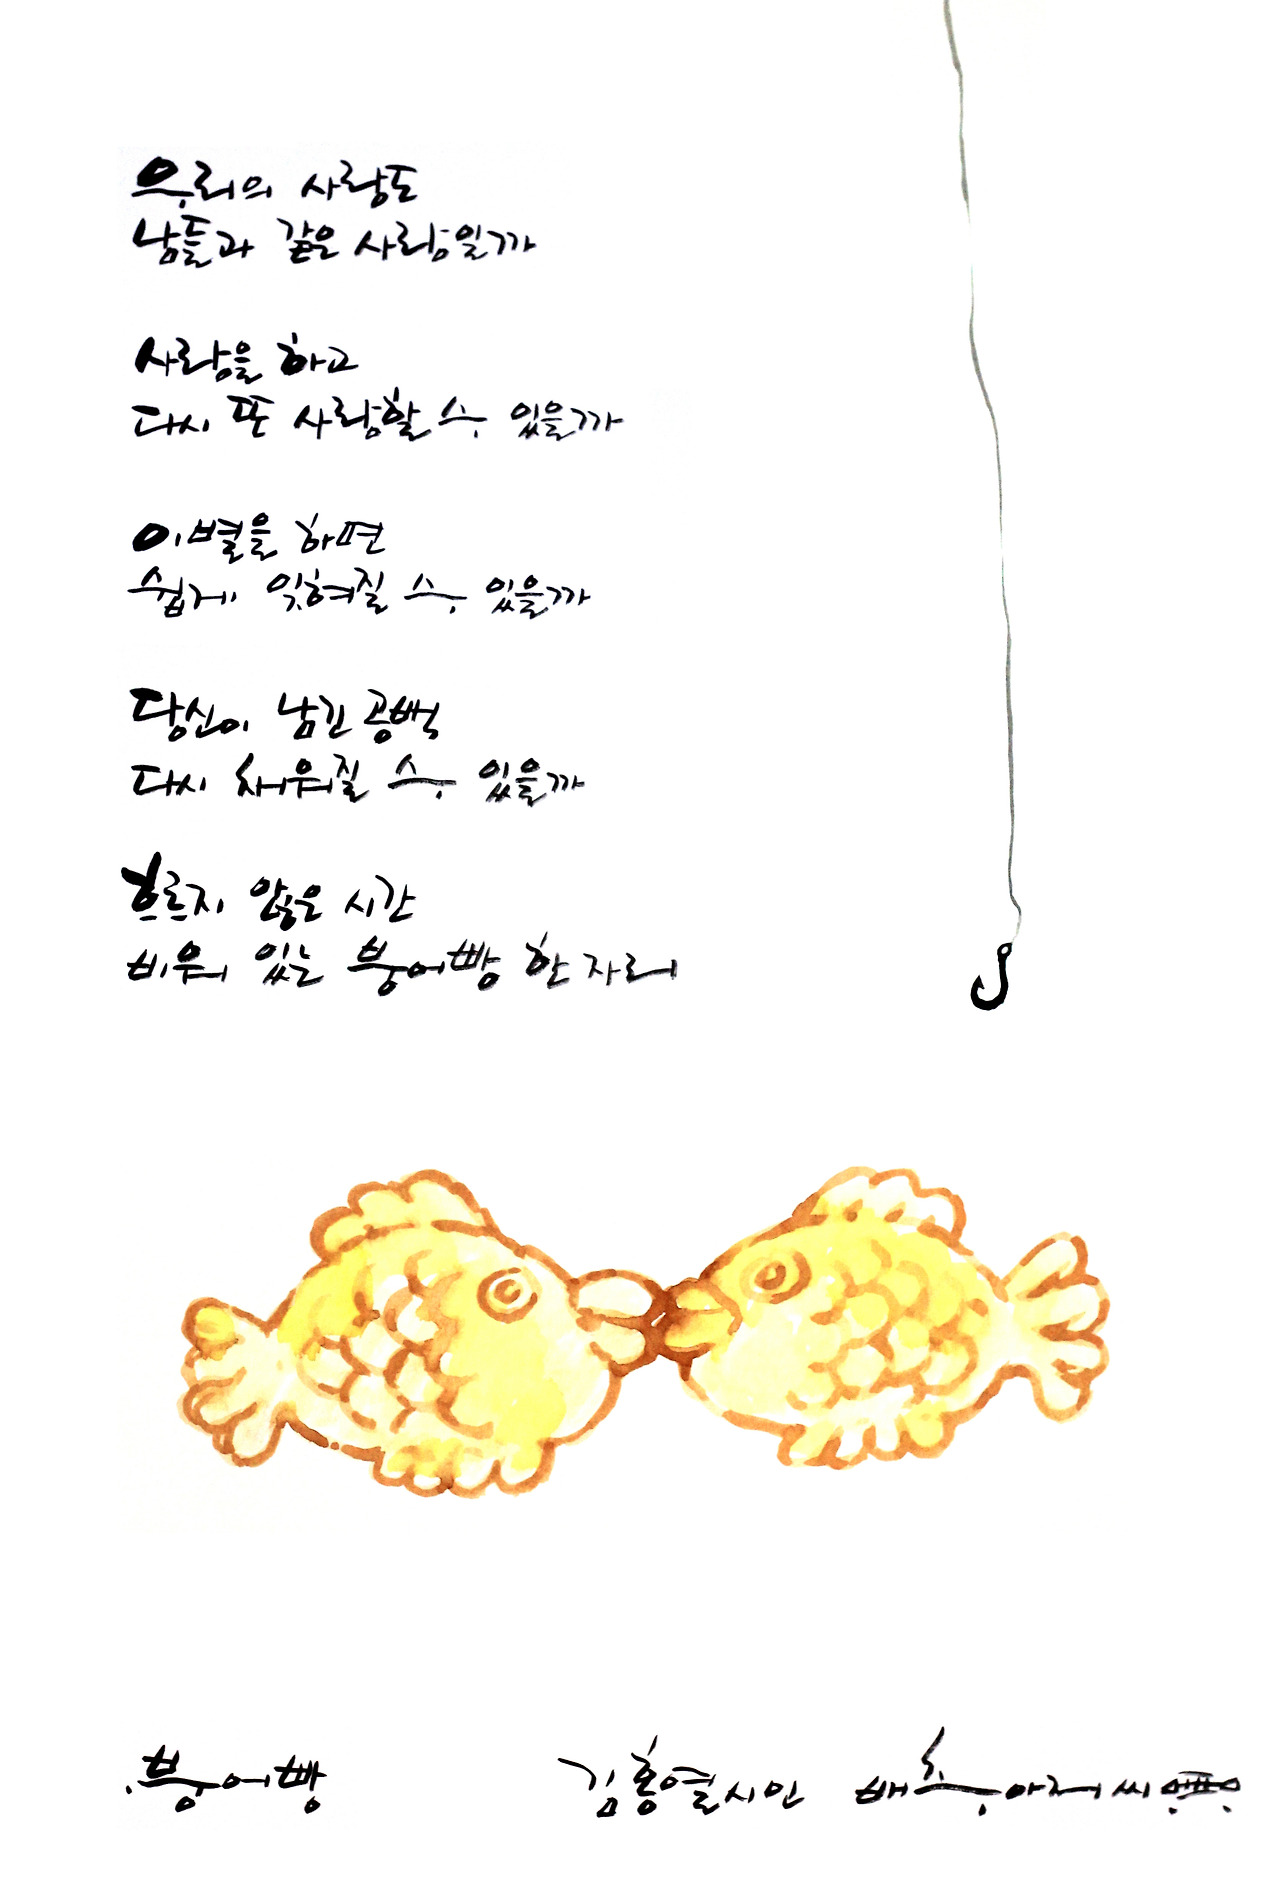 우리의 사랑도
남들과 같은 사랑일까
사랑을 하고
다시 또 사랑할 수 있을까
이별을 하면
쉽게 잊혀질 수 있을까
당신이 남긴 공백
다시 채워질 수 있을까
흐르지 않은 시간
비워 있는 붕어빵 한 자리
.붕어빵
김홍열시인 배추아저씨